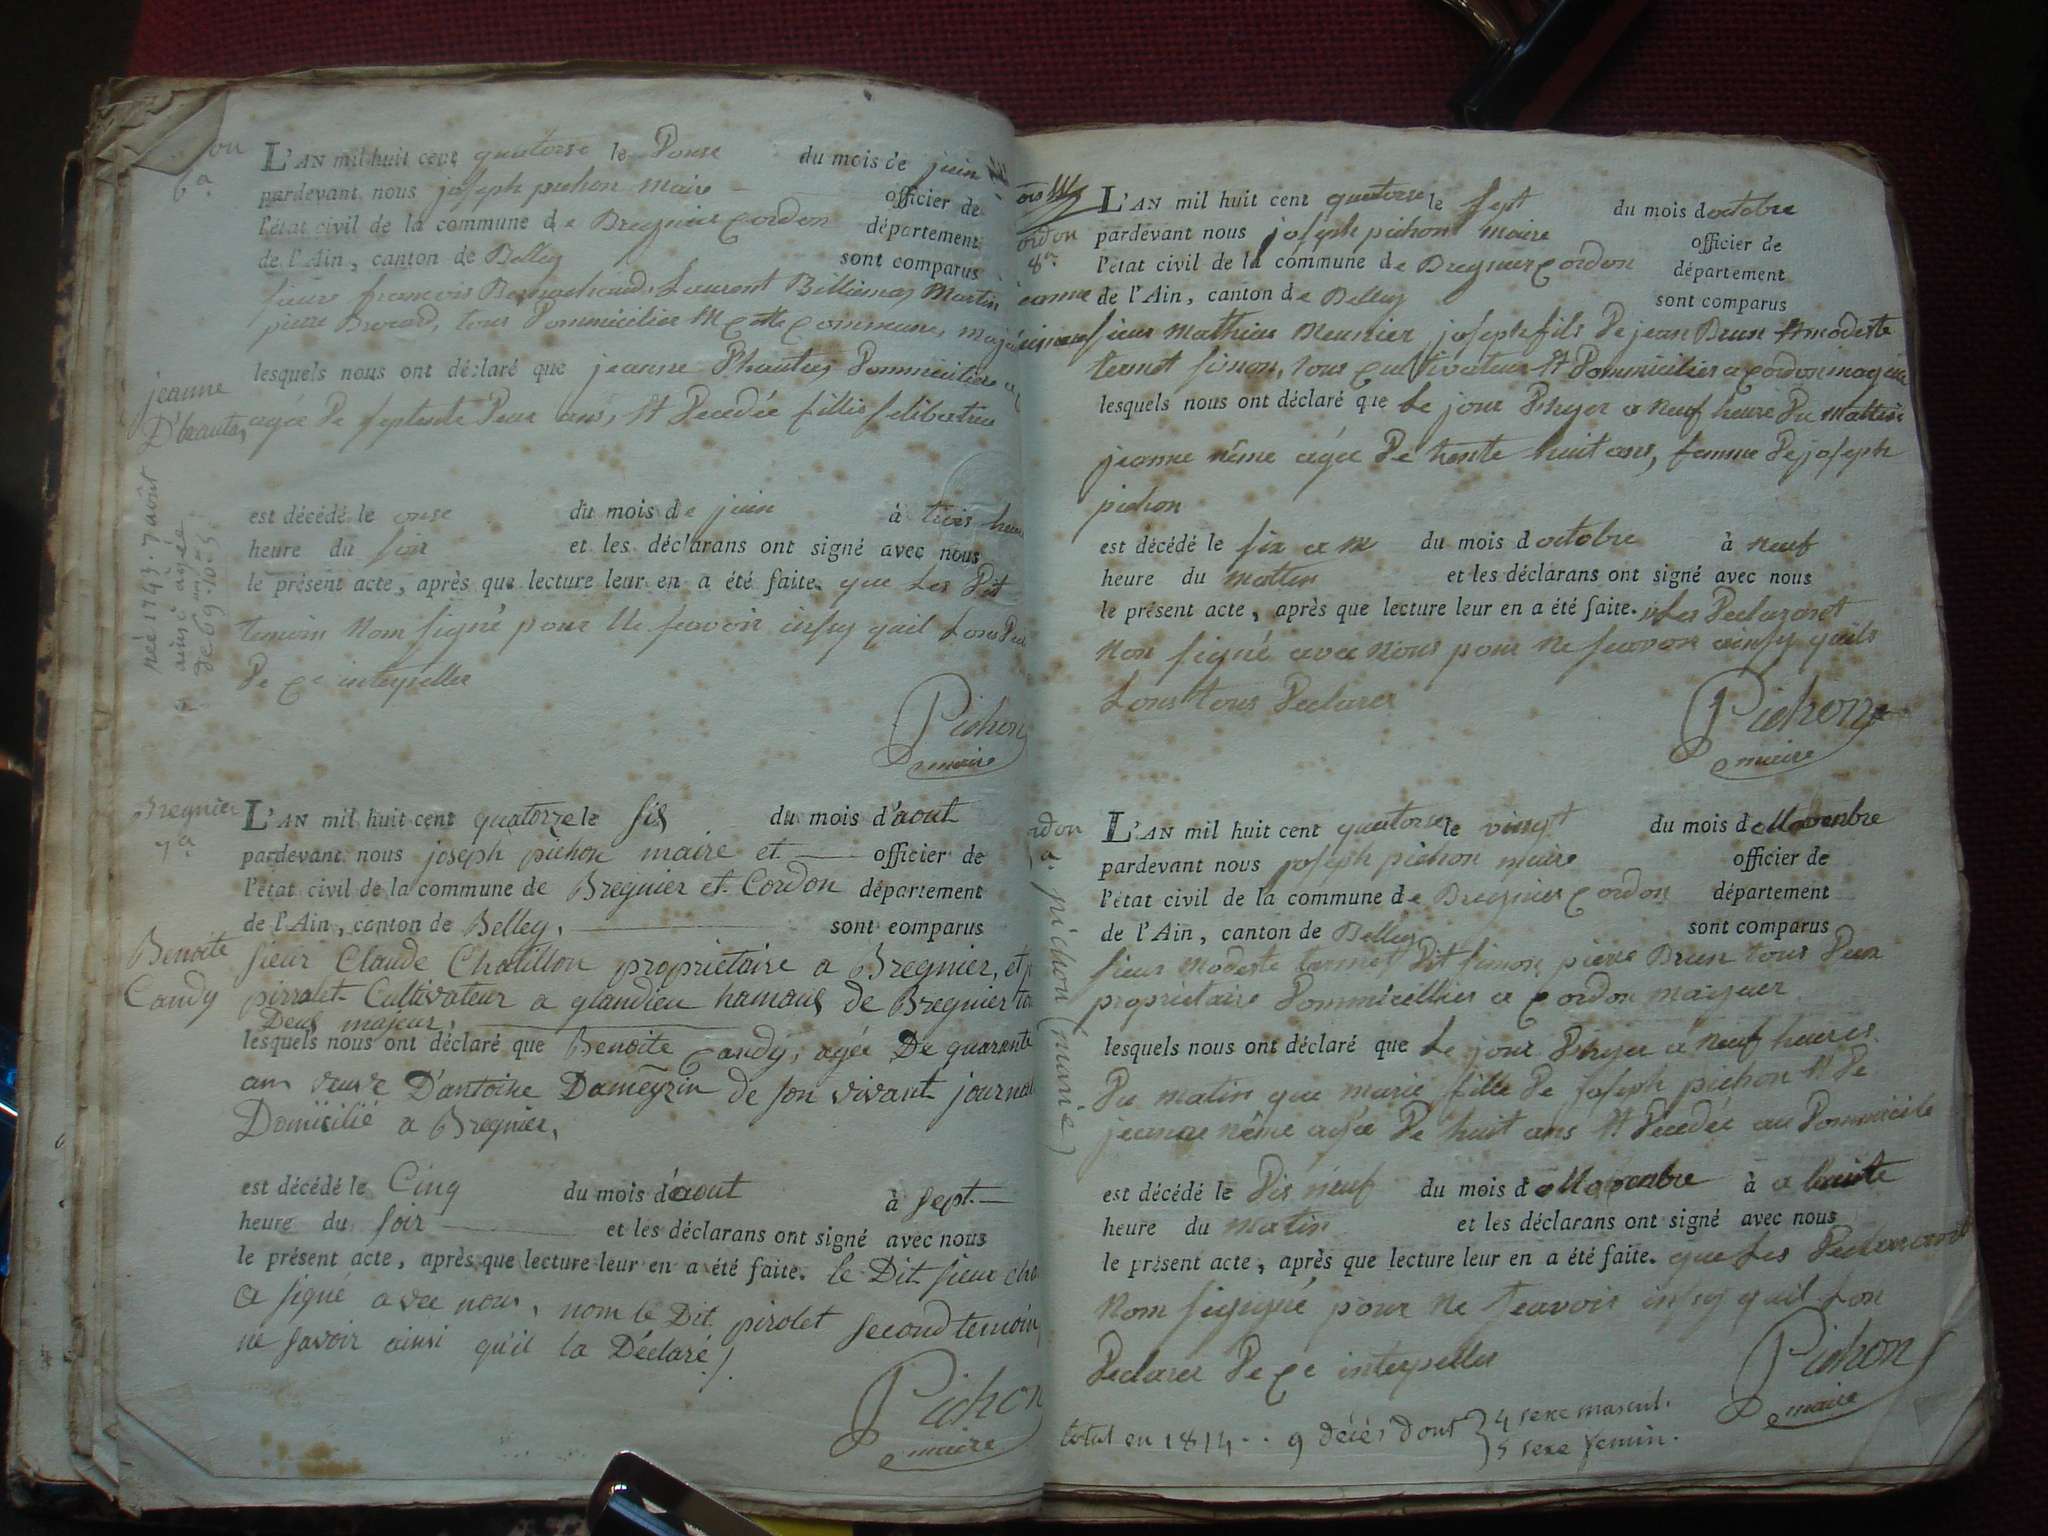 6ᵃ
L'AN mil huit cent quatorse le Douse du mois de juin
pardevant nous joseph pichon maire officier de
l'état civil de la commune de Bregnier Cordon département
de l'Ain, canton de Belley sont comparus
sieurs francois Laurent Martin
pierre tous Dommicilier commune,
lesquels nous ont déclaré que jeanne Dommiciliere a
jeanne
agée De septente Deux ans, et Decedée fillie selibatrice
est décédé le onse du mois de juin à trois heure
heure du soir et les déclarans ont signé avec nous
le présent acte, après que lecture leur en a été faite. que Les Dit
temoin Nom signé pour Ne savoir insy quil Lons
De Ce interpeller
née 1743. 7 août
ainsi agée
de 69.
Pichon
maire
Bregnier
7ᵃ
L'AN mil huit cent quatorze le six du mois d'aout
pardevant nous joseph pichon maire et officier de
l'état civil de la commune de Bregnier et Cordon département
de l'Ain, canton de Belley, sont comparus
Benoite
Candy
sieur Claude Chatillon propriétaire a Bregnier, et
pirralet Cultivateur a glandieu hamaux de Bregnier
Deux majeur,
lesquels nous ont déclaré que Benoite Candy, agée De quarante
ans veuve D'antoine Dameyzin de son vivant
Domicilié a Bregnier,
est décédé le Cinq du mois d'aout à sept
heure du soir et les déclarans ont signé avec nous
le présent acte, après que lecture leur en a été faite. le Dit sieur
a signé avec nous, nom le Dit pirolet second temoin
ne savoir ainsi qu'il la Déclaré /
Pichon
maire
8ᵉ
L'AN mil huit cent quatorse le sept du mois d'octobre
pardevant nous joseph pichon maire officier de
l'état civil de la commune de Bregnier Cordon département
de l'Ain, canton de Belley sont comparus
sieur Mathieu Meunier joseph fils De jean Brun et modeste
termet simon, tous Cultivateur et Dommicilier a Cordon
lesquels nous ont déclaré que Le jour D'hyer a Neuf heure Du Mattin
jeanne nême agée De trente huit ans, femme De joseph
pichon
est décédé le six du mois d'octobre à Neuf
heure du Mattin et les déclarans ont signé avec nous
le présent acte, après que lecture leur en a été faite. Les Declarant
Non signé avec Nous pour Ne savoir ainsy quils
Lons tous Declarer
Pichon
maire
pichon (marie)
L'AN mil huit cent quatorse le vingt du mois de Novenbre
pardevant nous joseph pichon maire officier de
l'état civil de la commune de Bregnier Cordon département
de l'Ain, canton de Belley sont comparus
sieur Modeste termet Dit simon pierre Brun tous Deux
propriétaire Dommicillier a Cordon
lesquels nous ont déclaré que Le jour D'hyer a Neuf heures
Du matin que marie fille De joseph pichon et De
jeanne nême agée De huit ans et Decedée au Dommicile
est décédé le Dix neuf du mois de Novenbre à
heure du matin et les déclarans ont signé avec nous
le présent acte, après que lecture leur en a été faite. que Les
Nom pour Ne savoir insy quil Lon
Declarer De Ce interpeller
Pichon
maire
total en 1814 .. 9 décès dont } 4 sexe mascul.
5 sexe femin.